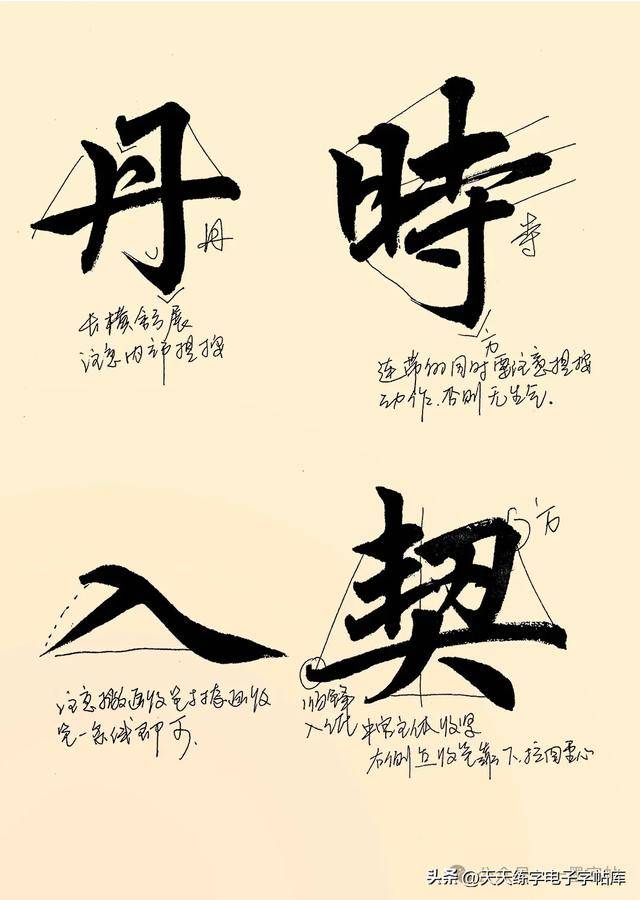 丹
丹
长横舒展
注意内部提按
時
寺
方
连带的同时要注意提按
动作,否则无生气.
入
注意撇画收笔与捺画收
笔一条线即可.
契
方
顺锋
入纸
中宫主体收紧
右侧
收笔靠下,拉开重心
头条 @天天练字电子字帖库